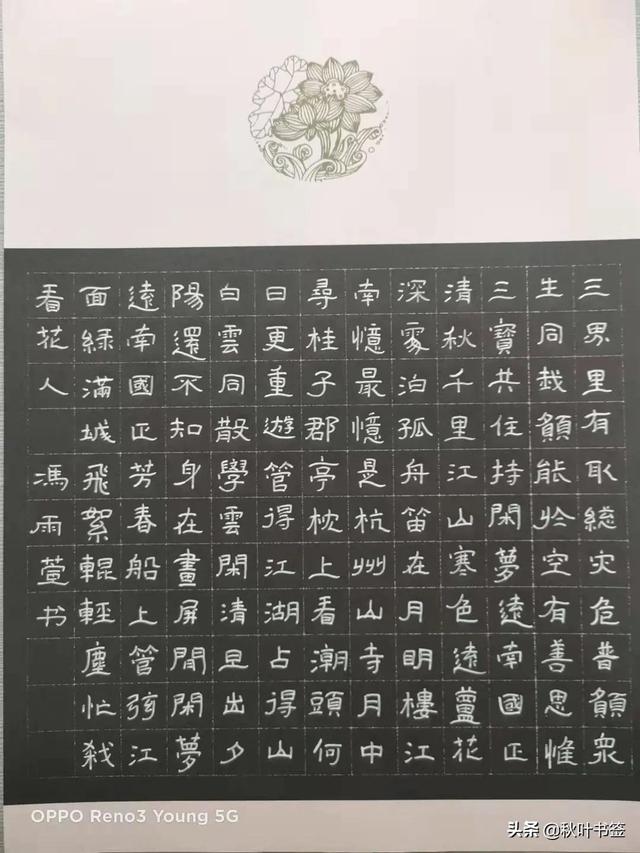 三界里有取総灾危普願衆
生同栽願能於空有善思惟
三寶共住持閑夢遠南國正
清秋千里江山寒色遠蘆花
深處泊孤舟笛在月明樓江
南憶最憶是杭州山寺月中
尋桂子郡亭枕上看潮頭何
日更重遊管得江湖占得山
白雲同散學雲閑清旦出夕
陽還不知身在畫屏間閑夢
遠南國正芳春船上管弦江
面綠滿城飛絮輥輕塵忙殺
看花人 馮雨萱书
OPPO Reno3 Young 5G
头条 @秋叶书签